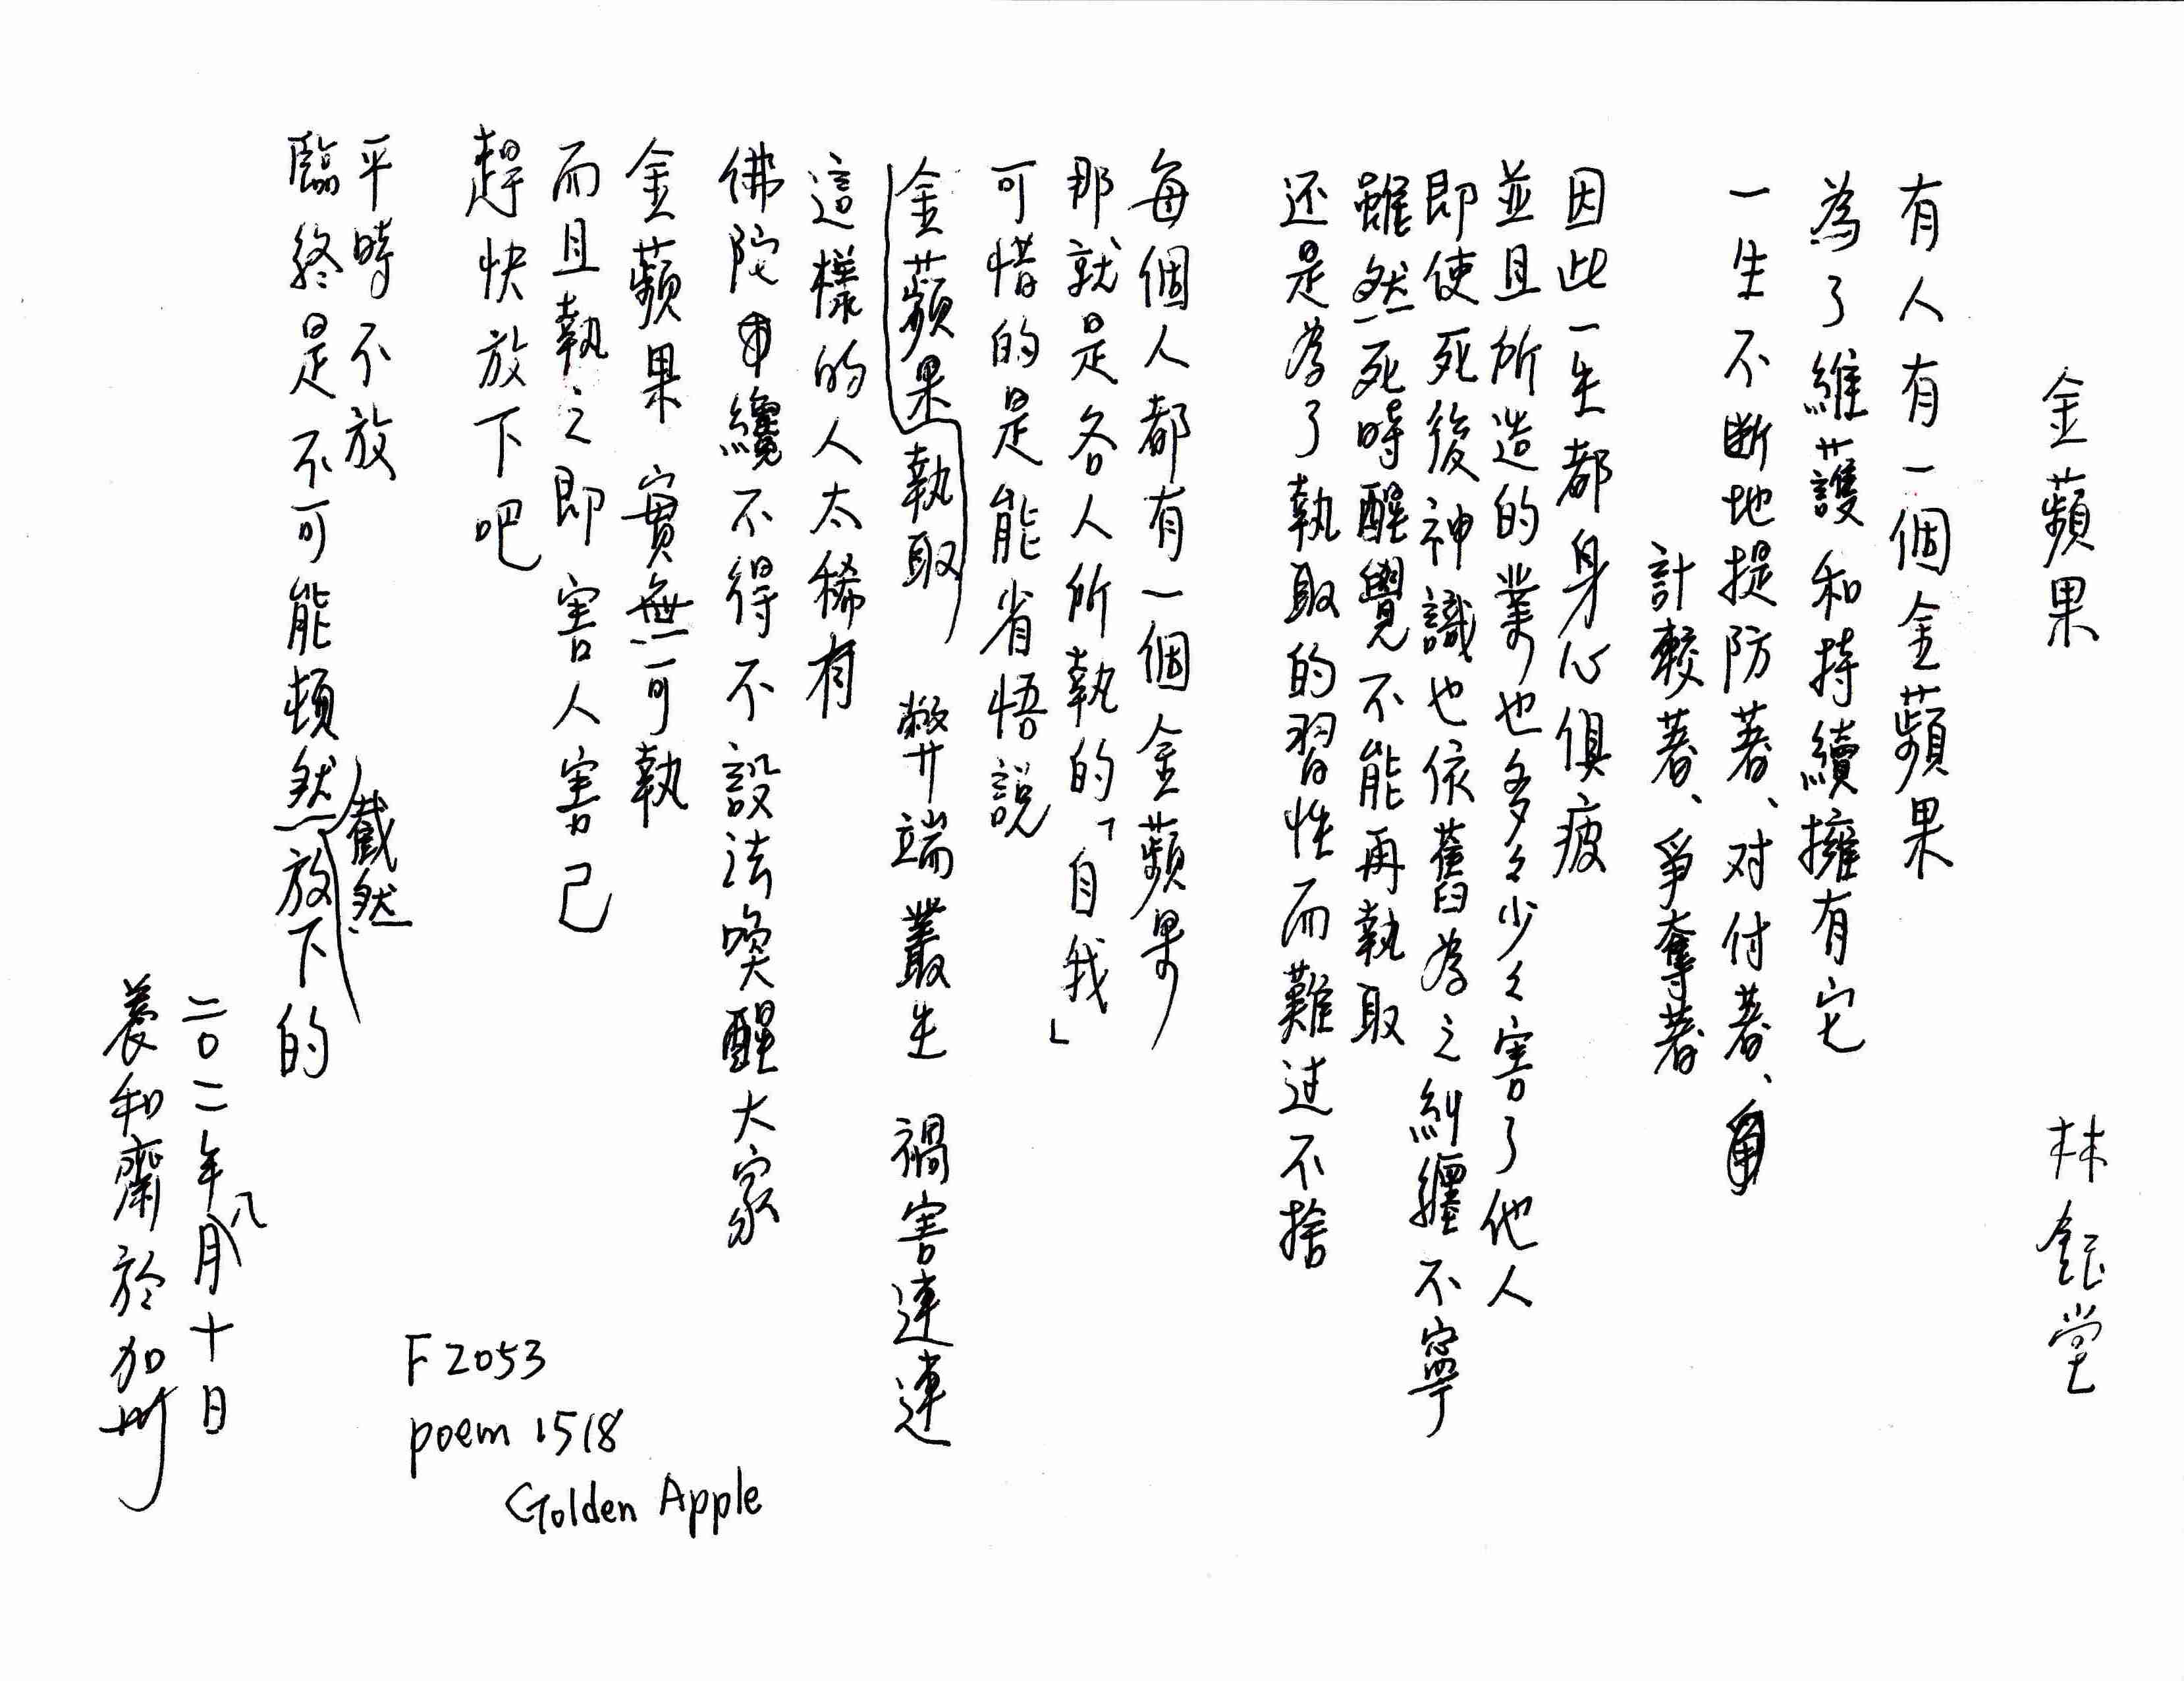 金蘋果　林鈺堂
有人有一個金蘋果
為了維護和持續擁有它
一生不断地提防著、对付著、
計較著、爭奪著
因此一生都身心俱疲
並且所造的業也多多少少害了他人
即使死後神識也依舊為之糾纏不寧
雖然死時醒覺不能再執取
还是為了執取的習性而難过不捨
每個人都有一個金蘋果
那就是各人所執的「自我」
可惜的是能省悟說
金蘋果執取　弊端叢生　禍害連連
這樣的人太稀有
佛陀纔不得不設法喚醒大家
金蘋果　實無可執
而且執之即害人害己
趕快放下吧
平時不放
臨終是不可能頓然截然放下的
二〇一一年八月十日
養和齋於加州
F 2053
poem 1518
Golden Apple